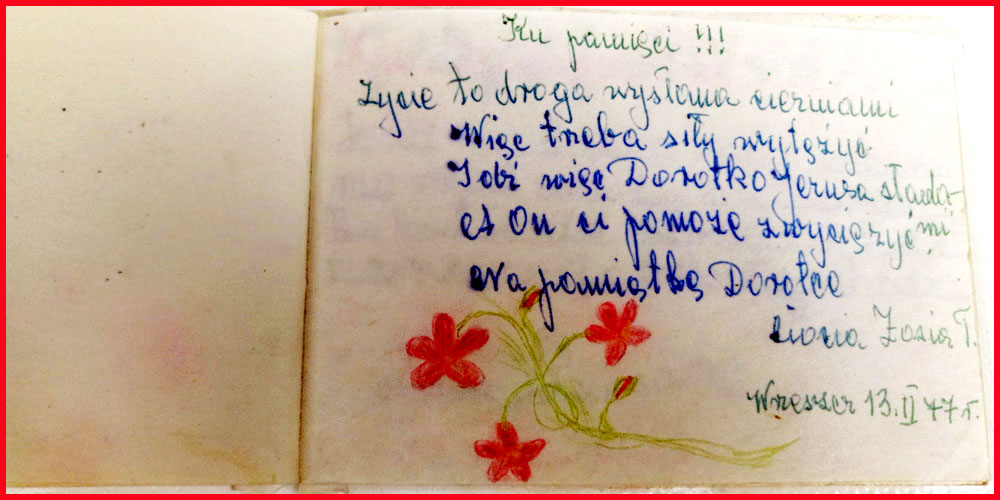 Ku pamięci !!!
życie to droga wysłana cierniami
Więc trzeba siły wytężyć
Idź więc Dorotko Jezusa ślada-
mi
A On ci pomoże zwyciężyć.
Na pamiątkę Dorotce
ciocia Zosia T.
Wrzeszcz 13.II 77 r.